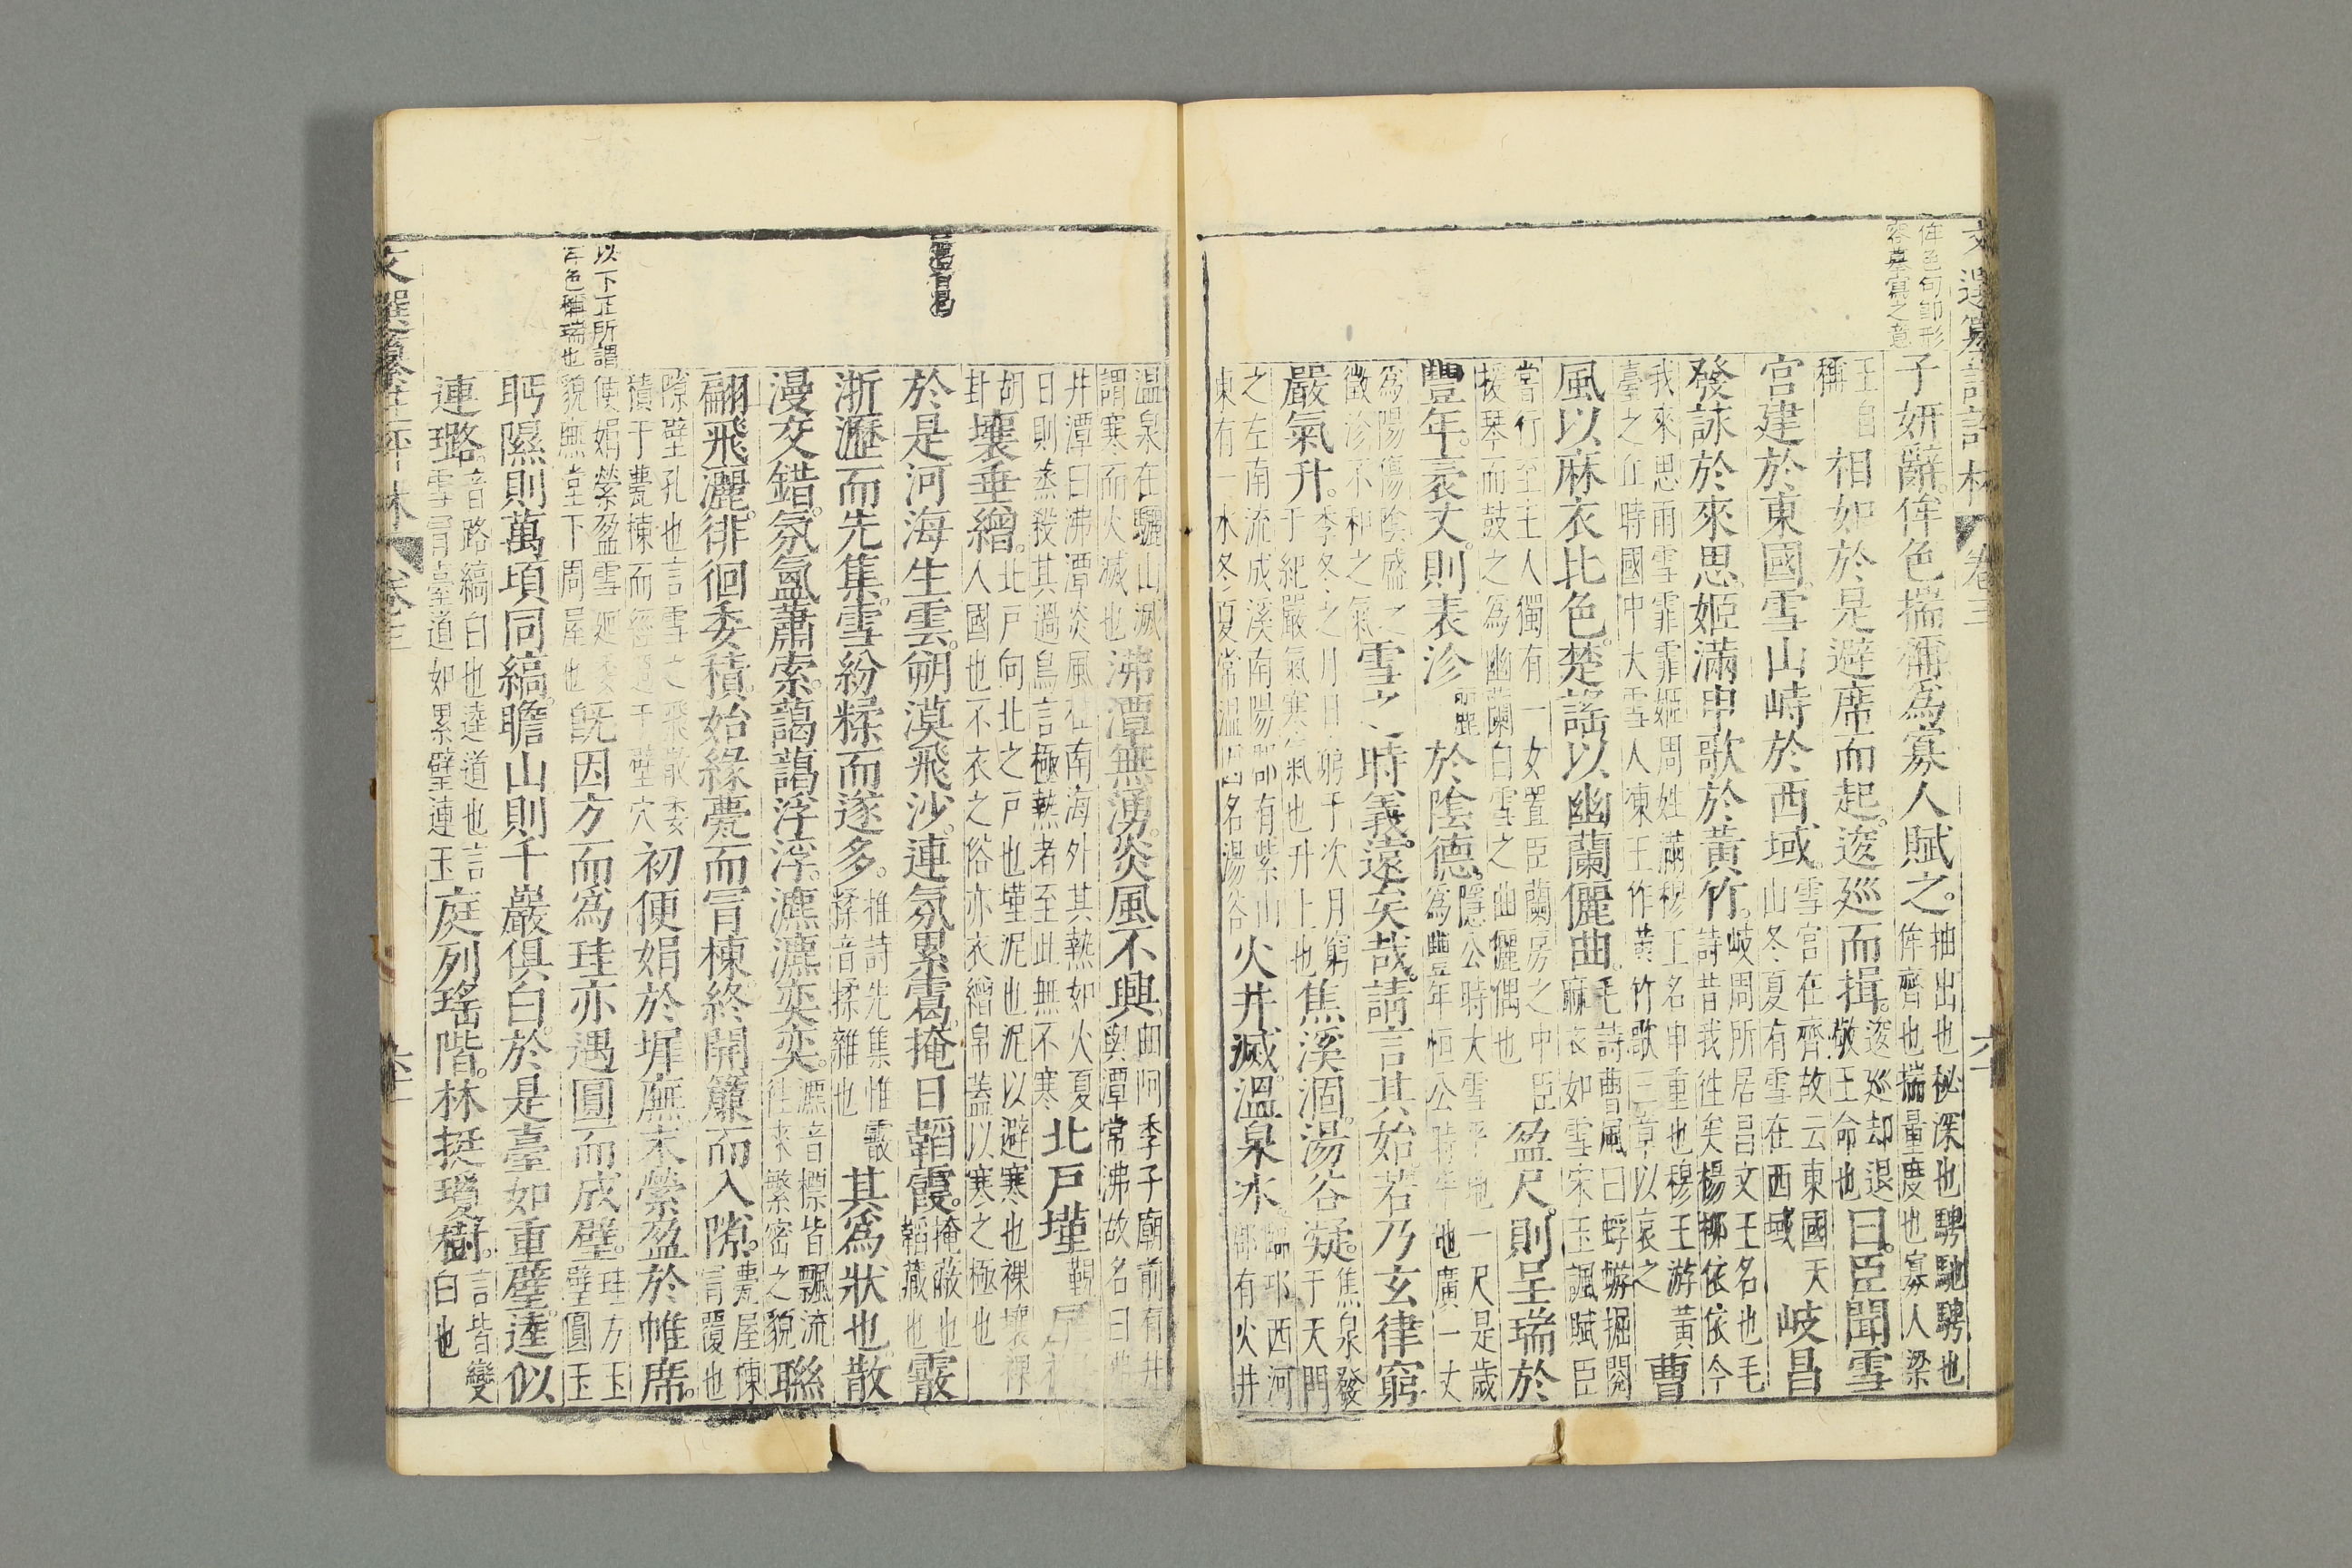 侔色句卽形
容摹寫之意
子妍辭侔色揣稱爲寡人賦之。抽出也秘深也騁馳騁也侔齊也揣量度也寡人梁
王自稱相如於是避席而起。逡巡而揖。逡巡却退敬王命也曰。臣聞雪
宮建於東國。雪山峙於西域。雪宮在齊故云東國天山冬夏有雪在西域岐昌
發詠於來思。姬滿申歌於黃竹。岐周所居昌文王名也毛詩昔我徃矣楊柳依依今
我來思雨雪霏霏姬周姓滿穆王名申重也穆王游黃臺之丘時國中大雪人凍王作黄竹歌三章以哀之曹
風以麻衣比色。楚謠以幽蘭儷曲。毛詩曹風曰蜉蝣掘閱麻衣如雪宋玉諷賦臣
嘗行至主人獨有一女置臣蘭房之中臣援琴而鼓之爲幽蘭白雪之曲儷偶也盈尺。則呈瑞於
豐年。袤丈。則表沴於陰德。隱公時大雪平地一尺是歲爲豐年恒公時年地廣一丈
爲陽傷陰盛之徵沴不和之氣雪之時義遠矣哉。請言其始。若乃玄律窮
嚴氣升。季冬之月日窮于次月窮于紀嚴氣寒氣也升上也焦溪涸。湯谷凝。焦泉發于天門
之左南流成溪南陽郡有紫山東有一水冬夏常溫因名湯谷火井滅。溫泉冰。臨邛西河鄉有火井
溫泉在驪山滅謂寒而火滅也沸潭無湧。炎風不興。曲阿季子廟前有井與潭常沸故名曰
井潭曰沸潭炎風在南海外其熱如火夏日則蒸殺其過鳥言極熱者至此無不寒北戶墐
壤垂繒。北戶向北之戸也墐泥也泥以避寒也裸壤裸人國也不衣之俗亦衣繒帛蓋以寒之極也
於是河海生雲。朔漠飛沙。連氛累靄。掩日韜霞。掩蔽也韜藏也霰
淅瀝而先集。雪紛糅而遂多。推詩先集惟霰糅音揉雜也其爲狀也。散
漫交錯。氛氳蕭索。藹藹浮浮。瀌瀌奕奕。瀌音標皆飄流徃來繁密之貌聯
翩飛灑。徘徊委積。始緣甍而冒棟。終開簾而入隙。甍屋棟冒覆也
隙壁孔也言雪之飛散委積于甍棟而經過于壁穴初便娟於墀廡。末縈盈於帷席。
以下正所謂
侔色稱瑞也
便娟縈盈雪廻委貌無堂下周屋也旣因方而爲珪。亦遇圓而成璧。珪方玉璧圓玉
眄隰則萬頃同縞。瞻山則千巖俱白。於是臺如重璧。逵似
連璐。音路縞白也逵道也言雪冒臺道如累璧連玉庭列瑤階。林挺瓊樹。言皆變白也